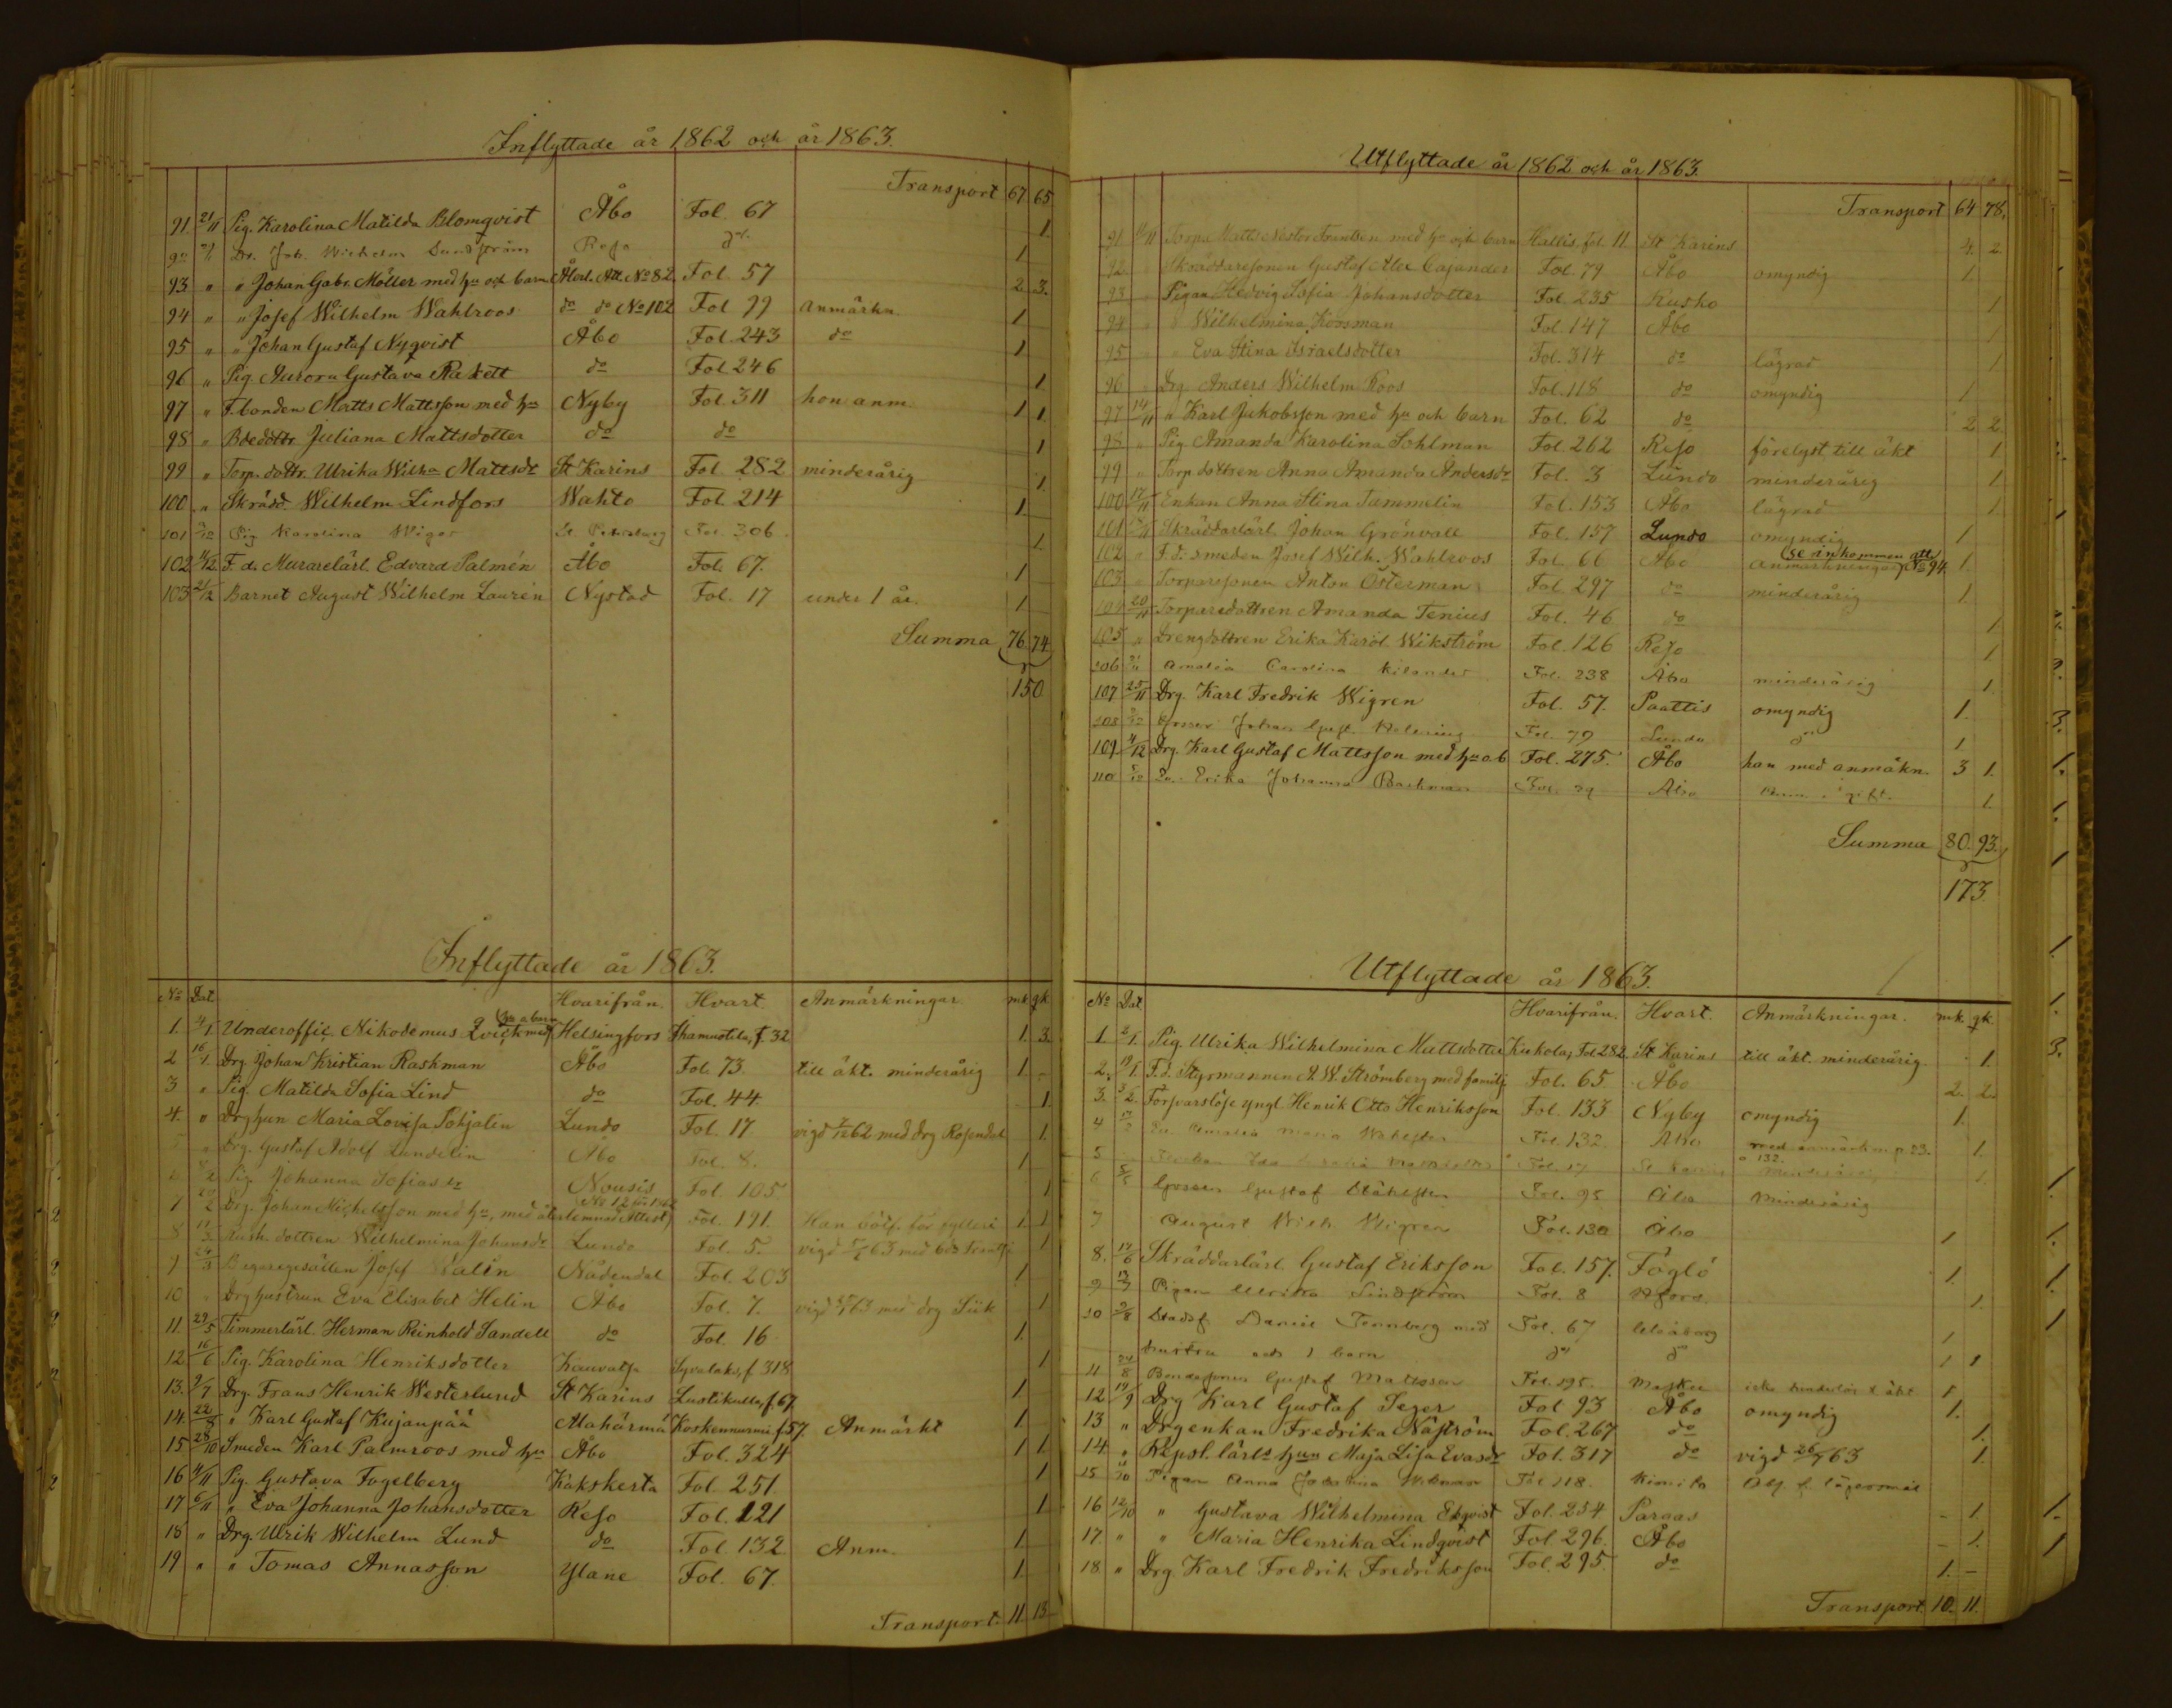 Inflyttade år 1862 och år 1863.
Transport 67 65
91. 21/11 Pig. Karolina Matilda Blomqvist Åbo Fol. 67 1.
92 Dr. Joh. Wilhelm Sundström Reso do 1
93 " " Johan Gabr. Möller med hu och barn Åbo l. Att. No 82. Fol. 57 2. 3.
94 " " Josef Wilhelm Wahlroos do do No 102 Fol 99 anmärkn. 1
95 " " Johan Gustaf Nyqvist Åbo Fol. 243 do 1
96 " Pig. Aurora Gustava Rakett do Fol 246 1
97 " F. bonden Matts Mattsson med hu Nyby Fol. 311 hon anm. 1 1
98 " Bdedottr. Juliana Mattsdotter do do 1
99 " Torp. dottr. Ulrika Wilhna Mattsdr St Karins Fol. 282 minderårig 1.
100. " Skrädd. Wilhelm Lindfors Wahto Fol. 214 1.
101 Pig Karolina St. Petersburg Fol. 306. 1.
102 4/12. F. d. Murarelärl. Edvard Palmén Åbo Fol. 67. 1
103 21/12 Barnet August Wilhelm Laurén Nystad Fol. 17 under 1 år. 1
Summa 76. 74.
150
Inflyttade år 1863.
No Dat. Hvarifrån. Hvart. Anmärkningar. mk. qk.
1. 4/1 Underoffic. Nikodemus Qvick med (hu o barn Helsingfors Thamnotila, f. 32 1. 3.
2 16/1. Drg. Johan Kristian Raskman Åbo Fol. 73. till äkt. minderårig 1 -
3 " Pig. Matilda Sofia Lind do Fol. 44. 1.
4. " Drg hun Maria Lovisa Tohjalin Lundo Fol. 17. vigd 7/12 62 med drg Rosendal 1.
5 " Drg. Gustaf Adolf Lundelin Åbo Fol. 8. 1
6 8/2 Pig. Johanna Sofiasdr Nousis Fol. 105. 1
7 20/2 Drg. Johan Michelsson med hu, med återlemnad Attest) No 12 för 1862 Fol. 191. Han bötf. för fylleri 1. 1
8 Rush. dottren Wilhelmina Johansdr Lundo Fol. 5. 1
9 24/3 Begaregesällen Josef Walin Nådendal Fol. 203 1
10 " Drg hustrun Eva Elisabet Helin Åbo Fol. 7. 1
11. 29/5 Timmerlärl. Herman Reinhold Sandell do Fol. 16 1.
12. 16/6 Pig. Karolina Henriksdotter Kauvatsa Syvalaks, f 318 1
13. 9/7 Drg. Frans Henrik Westerlund St Karins Lustikulla, f. 67. 1
14. 22/8 " Karl Gustaf Kujanpää Alahärmä Koskennurmi f 57. Anmärkt 1
15 28/10 Smeden Karl Palmroos med hu Åbo Fol. 324 1 1
16 4/11 Pig. Gustava Fogelberg Kakskerta Fol. 251. 1
17 6/11 " Eva Johanna Johansdotter Reso Fol. 121 1
18 " Drg. Ulrik Wilhelm Lund do Fol. 132. Anm. 1
19 " " Tomas Annasson Yläne Fol. 67. 1.
Transport. 11. 13
Utflyttade år 1862 och år 1863.
Transport 64 78.
91 Torp. Matts Nestor Frantsen med hu och barn Hallis, fol. 11 St Karins 4. 2.
92. Skräddaresonen Gustaf Alex Cajander Fol. 79 Åbo omyndig 1.
93 " Pigan Hedvig Sofia Johansdotter Fol. 235 Rusko 1
94 " " Wilhelmina Koosman Fol. 147 Åbo 1
95 " " Eva Stina Israelsdotter Fol. 314 do lägrad 1
96 Drg. Anders Wilhelm Roos Fol. 118 do omyndig 1
97 14/11 " Karl Jakobsson med hu och barn Fol. 62 do 2 2
98 " Pig. Amanda Karolina Sohlman Fol. 262 Reso förelyst till äkt 1
99 " Torp dottren Anna Amanda Andersdr Fol. 3 Lundo minderårig 1
100 17/11 Enkan Anna Stina Tammelin Fol. 153 Åbo lägrad 1
101 Skräddarlärl. Johan Grönvall Fol. 157 Lundo omyndig 1
102 " F. d. smeden Josef Wilh. Wahlroos Fol. 66 Åbo anmärkningar (se inkommen att No 94 1.
103. " Torparsonen Anton Österman Fol 297 do minderårig 1.
104 20/11 Torparedottren Amanda Tenius Fol. 46 do 1.
105 " Drengdottren Erika Karol. Wikström Fol. 126 Reso 1
106 Amalia Carolina Kilander Fol. 238 Åbo minderårig 1.
107 25/11 Drg. Karl Fredrik Wigren Fol. 57. Paattis omyndig 1.
108 Gossen Johan Gust. Fol. 79 Lundo do 1
109. 4/12 Drg. Karl Gustaf Mattsson med hu o. b Fol. 275. Åbo han med anmäkn. 3 1.
110 Erika Johanna Backman Åbo 1.
Summa 80. 93.
173.
Utflyttade år 1863.
No Dat. Hvarifrån. Hvart. Anmärkningar. mk. qk.
1. 2/1. Pig. Ulrika Wilhelmina Mattsdotter Kukola, Fol 282. St Karins till äkt. minderårig. 1.
2. 19/1 F. d. Styrmannen A. W. Strömberg med familj Fol. 65. Åbo 2. 2.
3. 3/2. Försvarslöse yngl. Henrik Otto Henriksson Fol. 133 Nyby omyndig 1.
4 Amalia Maria Fol. 132. Åbo med anmärkn. p. 23. o 132. 1.
5 Ida St Karins minderårig 1.
6 Gossen Gustaf Ståhlsten Fol. 95 Åbo minderårig
7 August Wilh. Wigren Fol. 130 Åbo 1
8. 17/6 Skräddarlärl. Gustaf Eriksson Fol. 157. Föglö 1.
9 Pigan Ulrika Lindström Fol. 8 1.
10 9/8 Daniel Tennberg med Fol. 67 Uleåborg 1
hustru och 1 barn do do 1 1
11 24/8 Bondesonen Gustaf Mattsson Fol. 195. Masku 1
12 14/9 Drg Karl Gustaf Seger Fol 93 Åbo omyndig 1.
13 " Drgenkan Fredrika Näström Fol. 267 do 1.
14. " Repsl. lärls hun Maja Lisa Evasdr Fol. 317 do vigd 26/7 63 1.
15 Pigan Anna Fol 118. Kimito
16 12/10 " Gustava Wilhelmina Ekqvist Fol. 254 Pargas - 1
17. " " Maria Henrika Lindqvist Fol 296. Åbo - 1.
18. " Drg. Karl Fredrik Fredriksson Fol. 295. do 1. -
Transport. 10. 11.